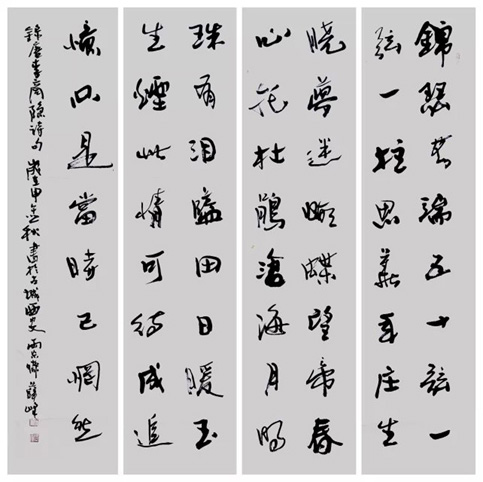 錦瑟無端五十弦一
弦一柱思華年莊生
曉夢迷蝴蝶望帝春
心托杜鵑滄海月明
珠有淚藍田日暖玉
生煙此情可待成追
憶只是當時已惘然
錄唐李商隱詩句 歲甲秋書於古城西安 薛峰